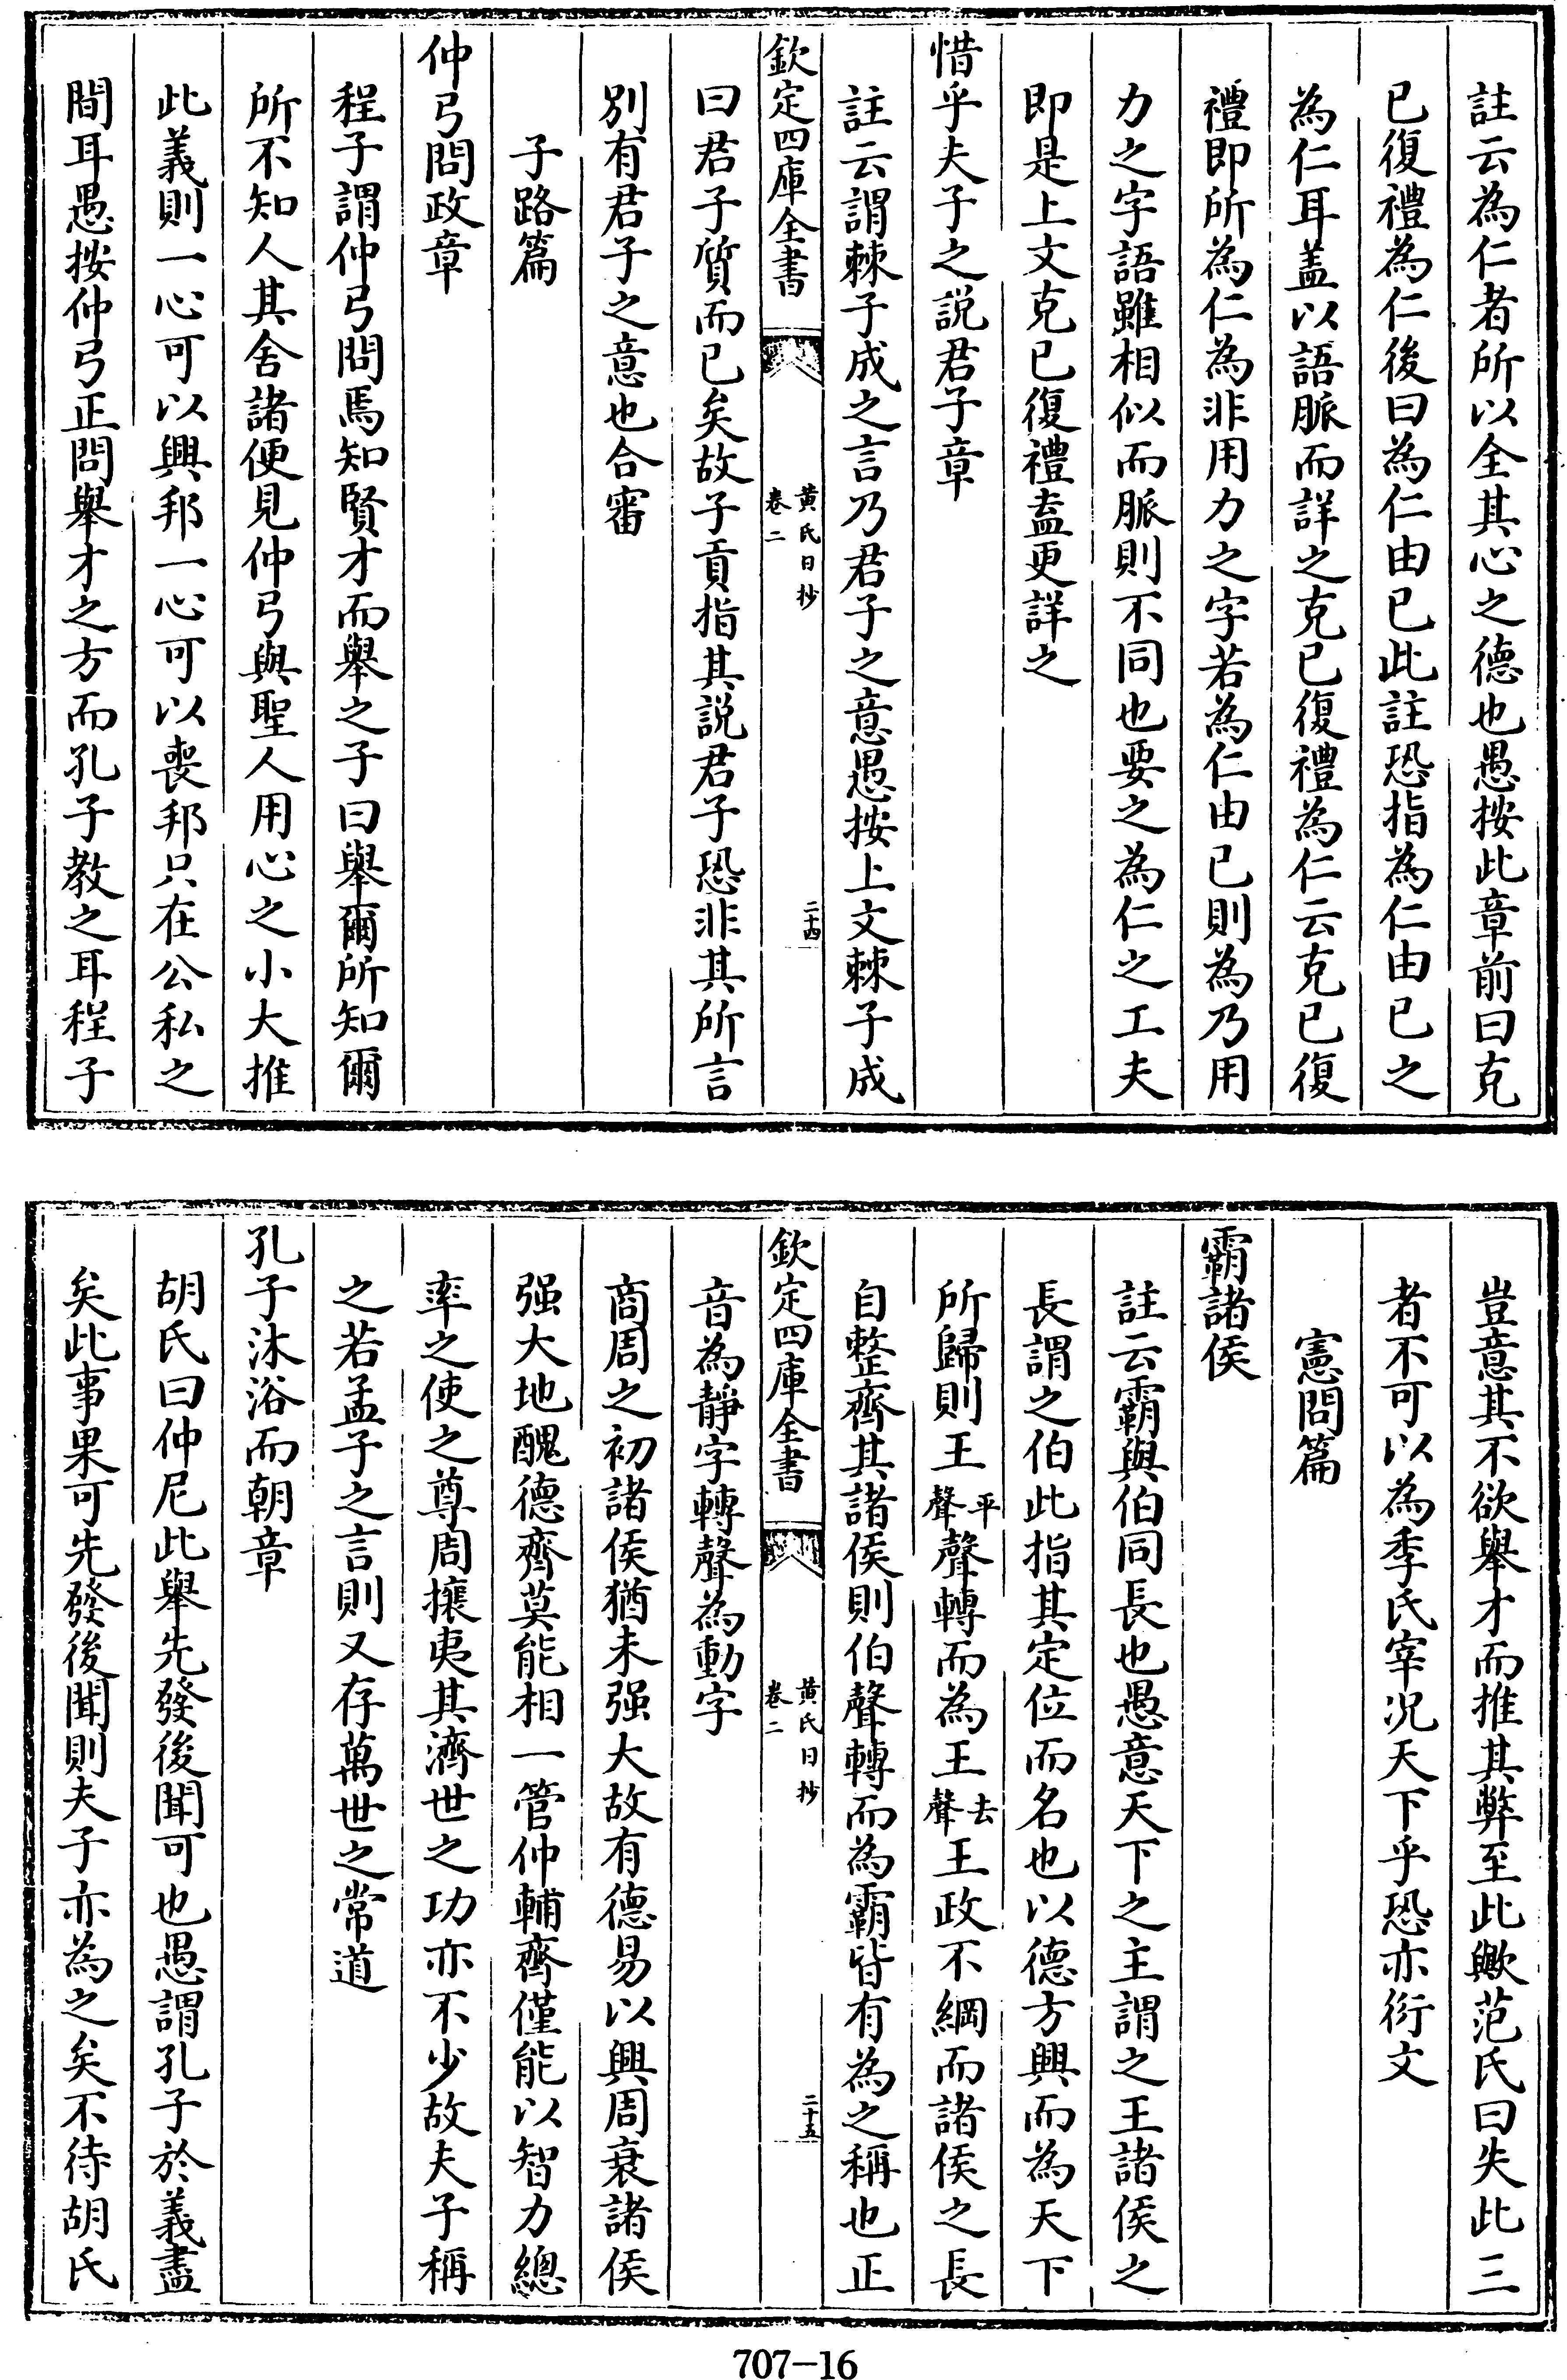 註云為仁者所以全其心之德也愚按此章前曰克
已復禮為仁後曰為仁由已此註恐指為仁由已之
為仁耳盖以語脈而詳之克已復禮為仁云克已復
禮即所為仁為非用力之字若為仁由已則為乃用
力之字語雖相似而脈則不同也要之為仁之工夫
即是上文克已復禮盍更詳之
惜乎夫子之説君子章
註云謂棘子成之言乃君子之意愚按上文棘子成
欽定四庫全書
黄氏日抄
卷二
二十四
曰君子質而已矣故子貢指其説君子恐非其所言
別有君子之意也合審
子路篇
仲弓問政章
程子謂仲弓問焉知賢才而舉之子曰舉爾所知爾
所不知人其舍諸便見仲弓與聖人用心之小大推
此義則一心可以興邦一心可以喪邦只在公私之
間耳愚按仲弓正問舉才之方而孔子教之耳程子
豈意其不欲舉才而推其弊至此歟范氏曰失此三
者不可以為季氏宰况天下乎恐亦衍文
憲問篇
霸諸侯
註云霸與伯同長也愚意天下之主謂之王諸侯之
長謂之伯此指其定位而名也以德方興而為天下
所歸則王平聲聲轉而為王去聲王政不綱而諸侯之長
自整齊其諸侯則伯聲轉而為霸皆有為之稱也正
欽定四庫全書
黄氏日抄
卷二
二十五
音為靜字轉聲為動字
商周之初諸侯猶未强大故有德易以興周衰諸侯
强大地醜德齊莫能相一管仲輔齊僅能以智力總
率之使之尊周攘夷其濟世之功亦不少故夫子稱
之若孟子之言則又存萬世之常道
孔子沐浴而朝章
胡氏曰仲尼此舉先發後聞可也愚謂孔子於義盡
矣此事果可先發後聞則夫子亦為之矣不待胡氏
707-16